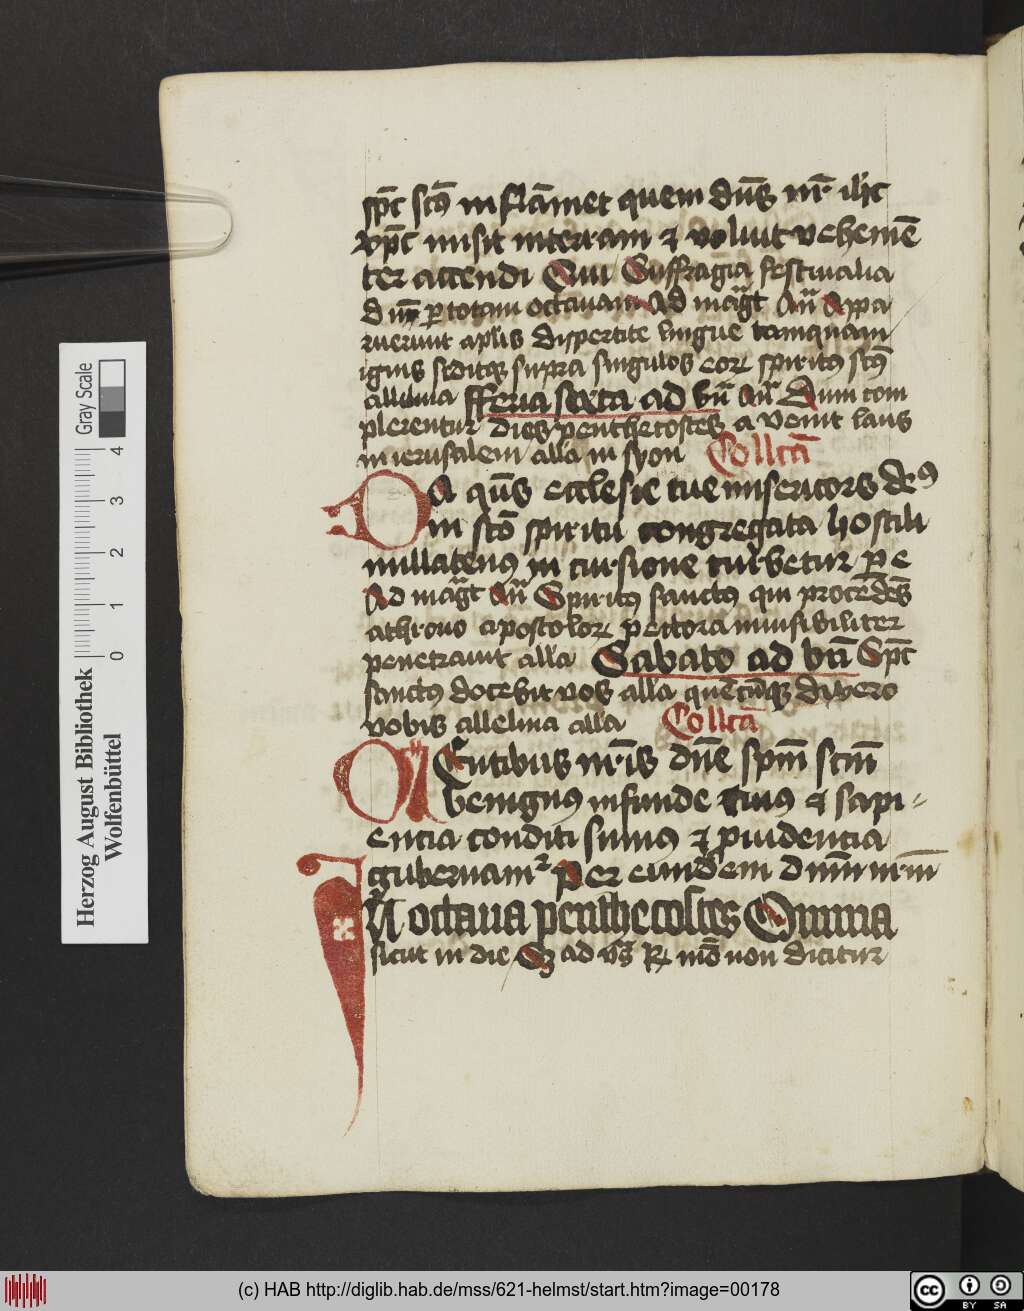 sp̄c sc̄o inflām̄et quem dn̄s nr̄ ih'c
xp̄c misit in terram ⁊ voluit vehemē
ter accendi Qui Suffragia festiualia
d nr̄ p totam octauam Ad maḡt an̄ Appa
ruerunt aplis dispertite lingue tamquam
ignis seditqꝫ supra singulos eoꝝ spiritꝰ sc̄s
alleluia fferia sexta ad bn̄ an̄ Dum com
plerentur dies penthecostes a venit laus
in ierusalem alla in syon Collcā
DA qs̄ ecclesie tue misericors deꝰ
in sc̄o spiritu congregata hostili
nullatenꝰ in cursione turbetur pe
Ad maḡt an̄ Spiritꝰ sanctꝰ qui procedēs
athrono apostoloꝝ pectora inuisibiliter
penetrauit alla Sabato ad bn̄ Sp̄c
sanctꝰ docebit vos alla quecūqꝫ dixero
vobis alleluia alla Collcā
MEntibus nr̄is dn̄e spm̄ scm̄
benignꝰ infunde cuiꝰ ⁊ sapi-
encia conditi sumus ⁊ puidencia
gubernamᷣ Per eiusdem dnm̄ nr̄m
IN octaua penthecostes Omnia
sicut in die Sꝫ ad vs̄ ꝶ mō non dicitur
Herzog August Bibliothek
Wolfenbüttel
Gray Scale
0 1 2 3 4
(c) HAB http://diglib.hab.de/mss/621-helmst/start.htm?image=00178
cc BY SA